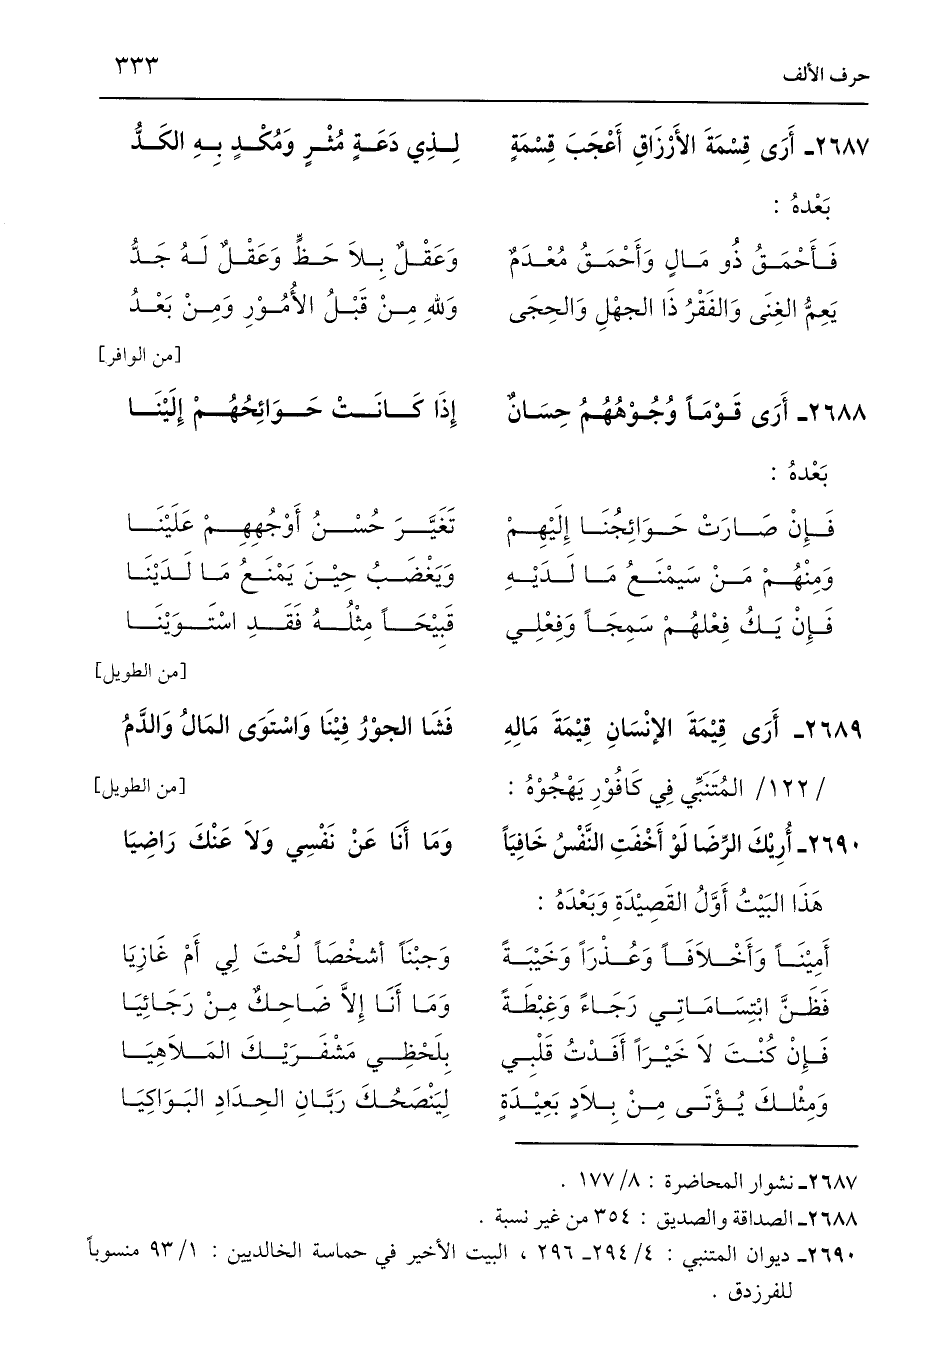 حرف الألف ٣٣٣
٢٦٨٧ـ أَرَى قِسْمَةَ الأَرْزَاقِ أَعْجَبَ قِسْمَةٍ لِـذِي دَعَـةٍ مُثْـرٍ وَمُكْـدٍ بِـهِ الكَـدُّ
بَعْدهُ :
فَـأَحْمَـقُ ذُو مَـالٍ وَأَحْمَـقُ مُعْـدَمٌ وَعَقْـلٌ بِـلاَ حَـظٍّ وَعَقْـلٌ لَـهُ جَـدُّ
يَعِمُّ الغِنَى وَالفَقْرُ ذَا الجهْلِ وَالحِجَى وَللهِ مِـنْ قَبْـلُ الأُمُـوْرِ وَمِـنْ بَعْـدُ
[من الوافر]
٢٦٨٨ـ أَرَى قَـوْمَـاً وُجُـوْهُهُـمُ حِسَـانٌ إِذَا كَـانَـتْ حَـوَائِجُهُـمْ إِلَيْنَـا
بَعْدهُ :
فَـإِنْ صَـارَتْ حَـوَائِجُنَـا إِلَيْهِـمْ تَغَيَّـرَ حُسْـنُ أَوْجُهِهِـمْ عَلَيْنَـا
وَمِنْهُـمْ مَـنْ سَيَمْنَـعُ مَـا لَـدَيْـهِ وَيَغْضَـبُ حِيْـنَ يَمْنَـعُ مَـا لَـدَيْنَـا
فَـإِنْ يَـكُ فِعْلهُـمْ سَمِجَـاً وَفِعْلِـي قَبِيْحَـاً مِثْلُـهُ فَقَـدِ اسْتَـوَيْنَـا
[من الطويل]
٢٦٨٩ـ أَرَى قِيْمَةَ الإِنْسَانِ قِيْمَةَ مَالِهِ فَشَا الجوْرُ فِيْنَا وَاسْتَوَى المَالُ وَالدَّمُ
/ ١٢٢/ المُتَنَبِّي فِي كَافُوْرٍ يَهْجُوْهُ : [من الطويل]
٢٦٩٠ـ أُرِيْكَ الرِّضَا لَوْ أَخْفَتِ النَّفْسُ خَافِيَاً وَمَا أَنَا عَنْ نَفْسِي وَلاَ عَنْكَ رَاضِيَا
هَذَا البَيْتُ أَوَّلُ القَصِيْدَةِ وَبَعْدَهُ :
أَمِيْنَـاً وَأَخْـلاَفَـاً وَغُـذْرَاً وَخَيْبَـةً وَجبْنَاً أشخْصَاً لُحْتَ لِي أَمْ غَازِيَا
فَظَـنَّ ابْتِسَـامَـاتِـي رَجَـاءً وَغِبْطَـةً وَمَـا أَنَـا إِلاَّ ضَـاحِـكٌ مِـنْ رَجَـائِيَـا
فَـإِنْ كُنْـتَ لاَ خَيْـرَاً أَفَـدْتُ قَلْبِـي بِلَحْظِـي مَشْفَـرَيْـكَ المَـلاَهِيَـا
وَمِثْلـكَ يُـؤْتَـى مِـنْ بِـلاَدٍ بَعِيْـدَةٍ لِيَنْضَحُـكَ رَبَّـانِ الحِـدَادِ البَـوَاكِيَـا
٢٦٨٧ـ نشوار المحاضرة : ٨/ ١٧٧ .
٢٦٨٨ـ الصداقة والصديق : ٣٥٤ من غير نسبة .
٢٦٩٠ـ ديوان المتنبي : ٤/ ٢٩٤ـ ٢٩٦ ، البيت الأخير في حماسة الخالديين : ١/ ٩٣ منسوباً
للفرزدق .